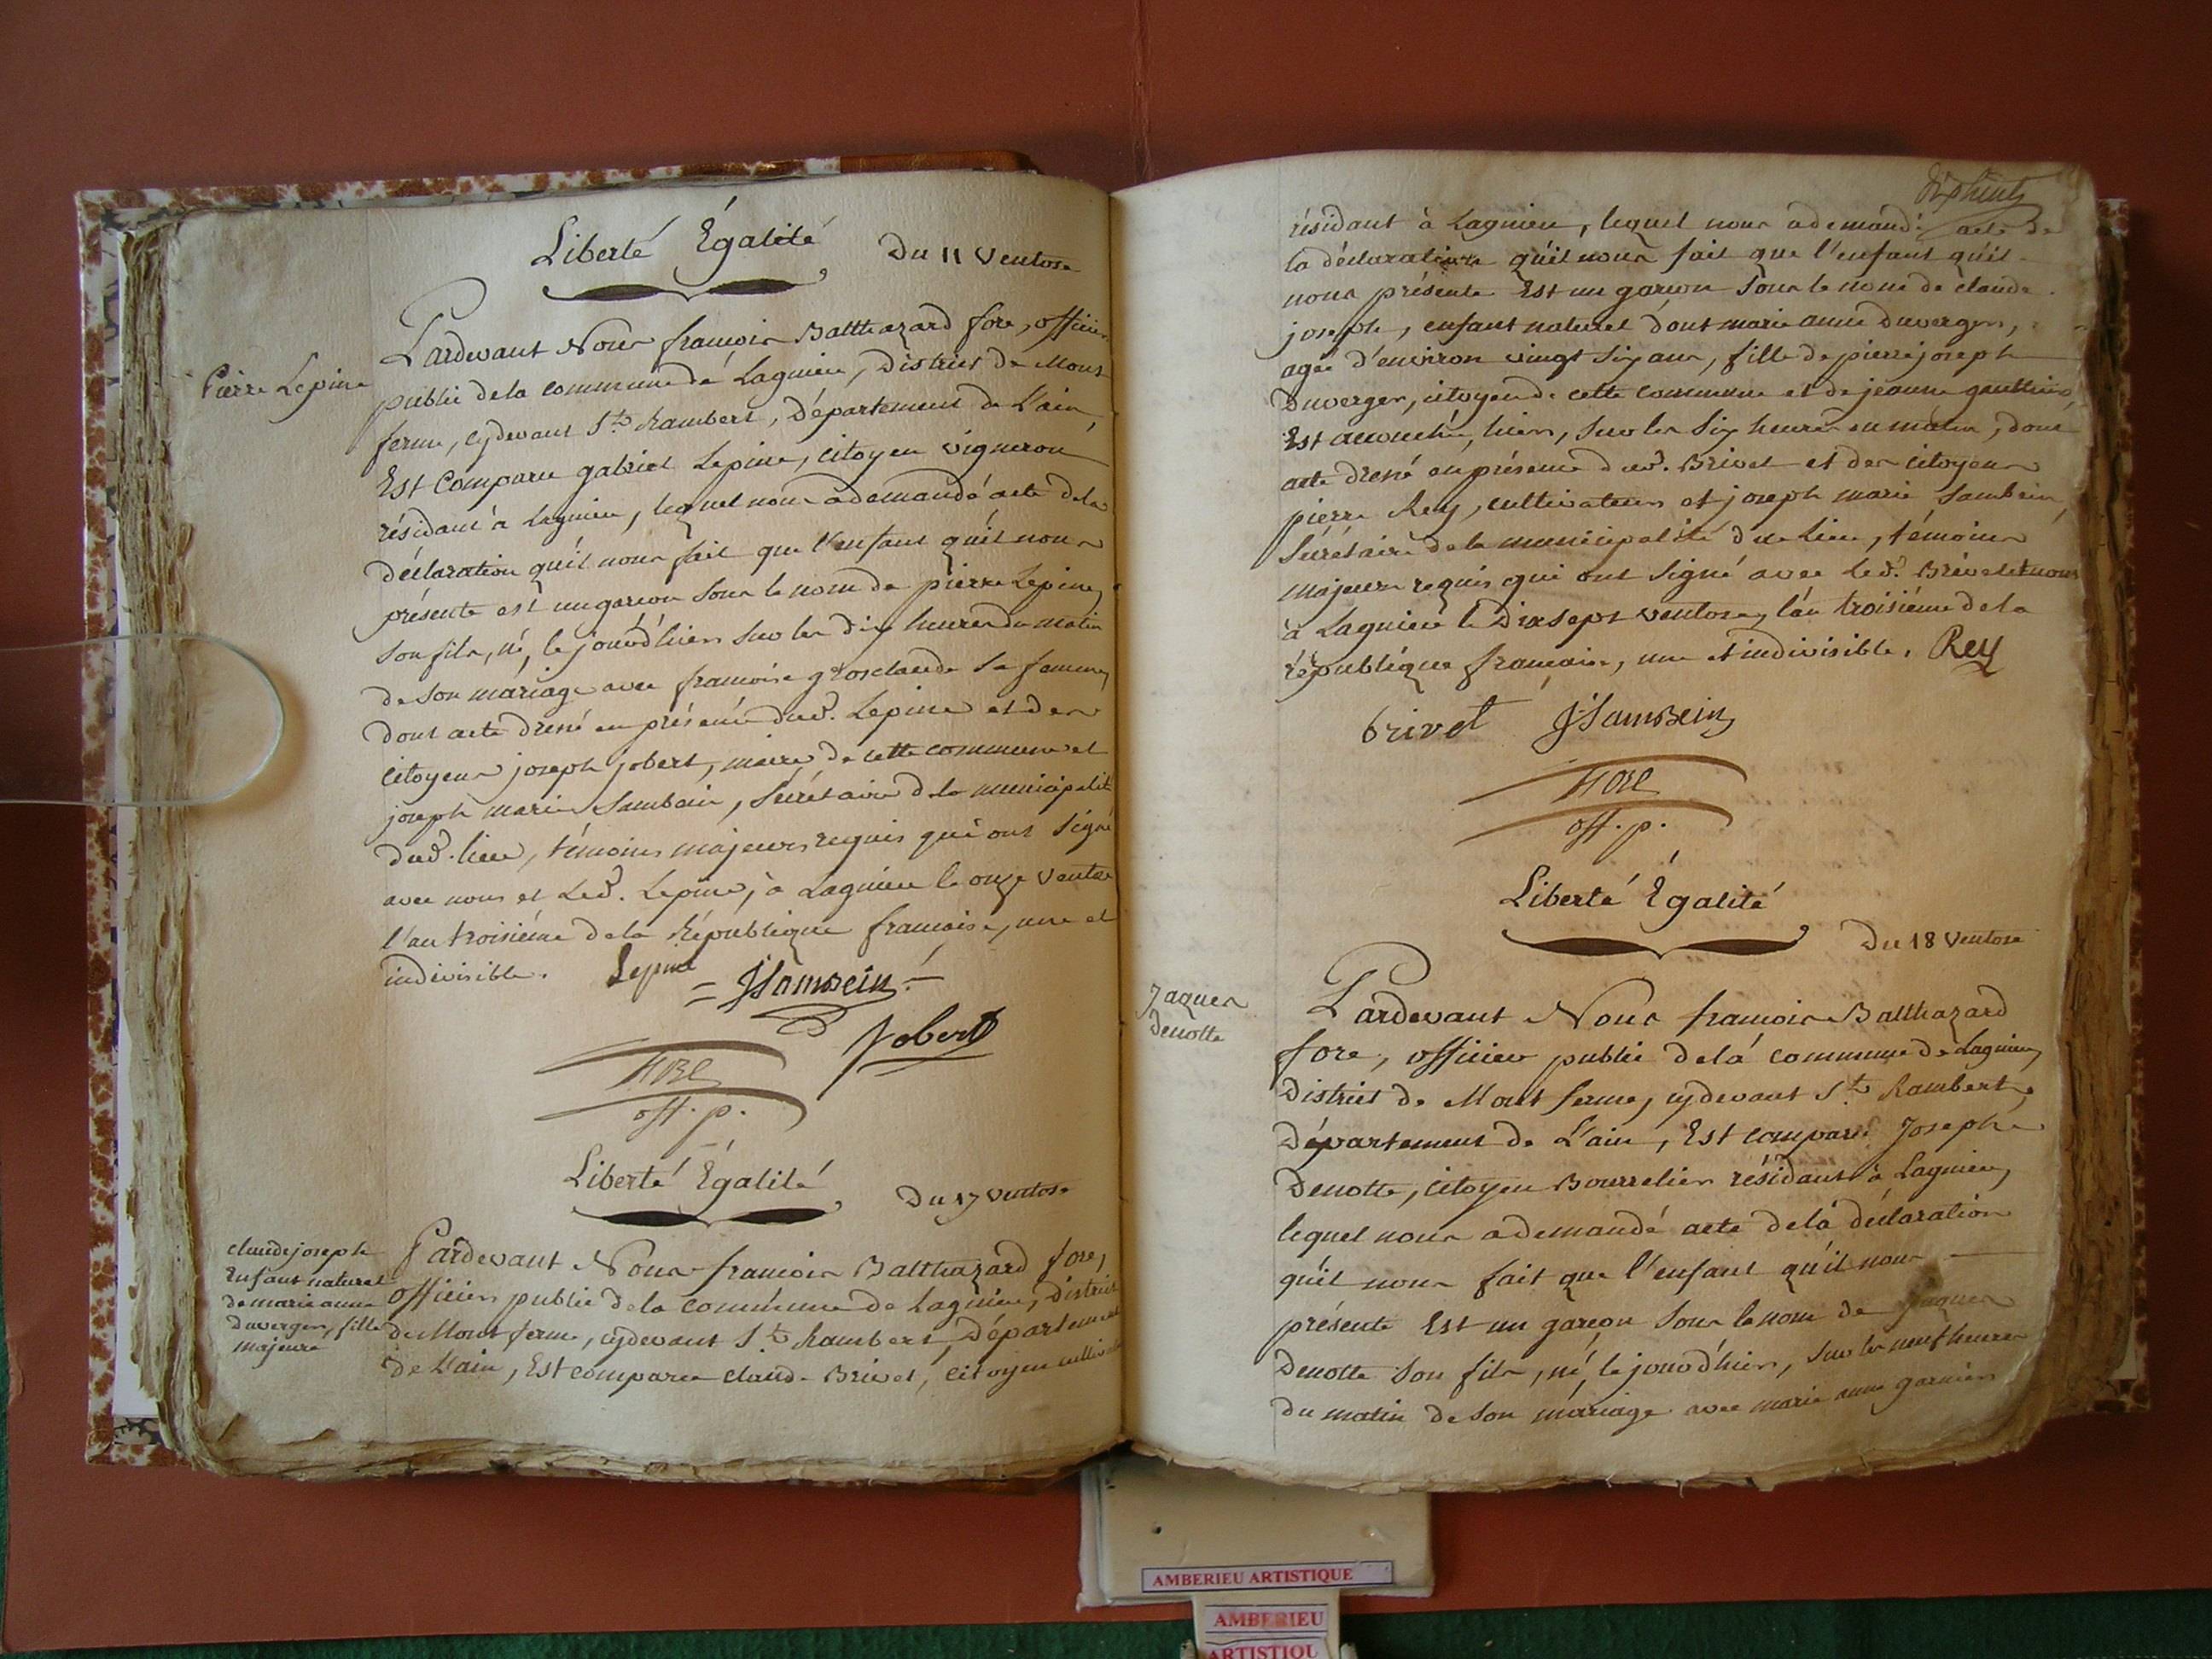 Liberté Égalité
Du 11 Ventose
Pierre Lepine
Pardevant Nous francois Balthazard fore, officier
public de la commune de Lagnieu, District de Mont
ferme, cydevant St. Rambert, Département de L'ain,
Est Comparu gabriel Lepine, citoyen vigneron
résidant à Lagnieu, lequel nous a demandé acte dela
déclaration qu'il nous fait que l'enfant qu'il nous
présente est un garcon sous le nom de pierre Lepine,
son fils, né, le jour d'hier sur les dix heures du matin
de son mariage avec francoise grosclaude sa femme,
dont acte dressé en présence dud. Lepine et des
citoyens joseph jobert, maire de cette commune et
joseph marie Sambein, Sécrétaire dela municipalité
dud. lieu, témoins majeurs requis qui ont signé
avec nous et Led. Lepine, à Lagnieu le onze Ventose
l'an troisiéme dela République francaise, une et
indivisible. Lepine
JSambein
Jobert
FORE
off. p.
Liberté Égalité
Du 17 Ventose
claude joseph
Enfant naturel
de marie anne
duverger, fille
majeure
Pardevant Nous francois Balthazard fore,
officier public dela commune de Lagnieu, District
de Mont ferme, cydevant St. Rambert, Département
de L'ain, Est comparu claude Brivet, citoyen
résidant à Lagnieu, lequel nous a demandé acte de
la déclaration qu'il nous fait que l'enfant qu'il
nous présente Est un garcon sous le nom de claude
joseph, enfant naturel dont marie anne duverger,
agée d'environ vingt six ans, fille de pierre joseph
Duverger, citoyen de cette commune et de jeanne
Est accouchée, hier, sur les six heures du matin, dont
acte dressé en présence dud. Brivet et des citoyens
pierre Rey, cultivateur et joseph marie Sambein,
Sécrétaire de la municipalité dece Lieu, témoins
majeurs requis qui ont signé avec Led. Brivet et nous
à Lagnieu le Dix sept ventose, l'an troisiéme dela
république francaise, une et indivisible. Rey
brivet JSambein
FORE
off. p.
Liberté Égalité
Du 18 Ventose
Jaques
Denotte
Pardevant Nous francois Balthazard
fore, officier public dela commune de Lagnieu,
District de Mont ferme, cydevant St. Rambert,
Département de L'ain, Est comparu Joseph
Denotte, citoyen Bourrelier résidant à Lagnieu,
lequel nous a demandé acte dela déclaration
qu'il nous fait que l'enfant qu'il nous
présente Est un garçon sous le nom de Jaques
Denotte son fils, né, le jour d'hier, sur les neuf heures
du matin de son mariage avec marie anne garnier
AMBERIEU ARTISTIQUE
AMBERIEU
ARTISTIQU